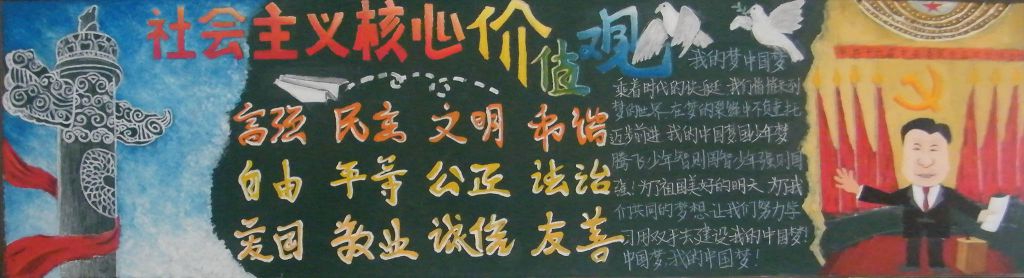 社会主义核心价值观
富强 民主 文明 和谐
自由 平等 公正 法治
爱国 敬业 诚信 友善
我的梦中国梦
乘着时代的快艇 我们
梦的世界 在梦的 中不
迈步前进 我的中国梦 少年梦
腾飞少年智则国智少年强则国
强 为了祖国美好的明天 为了我
们共同的梦想 让我们努力学
习用双手去建设我的中国梦!
中国梦,我的中国梦!